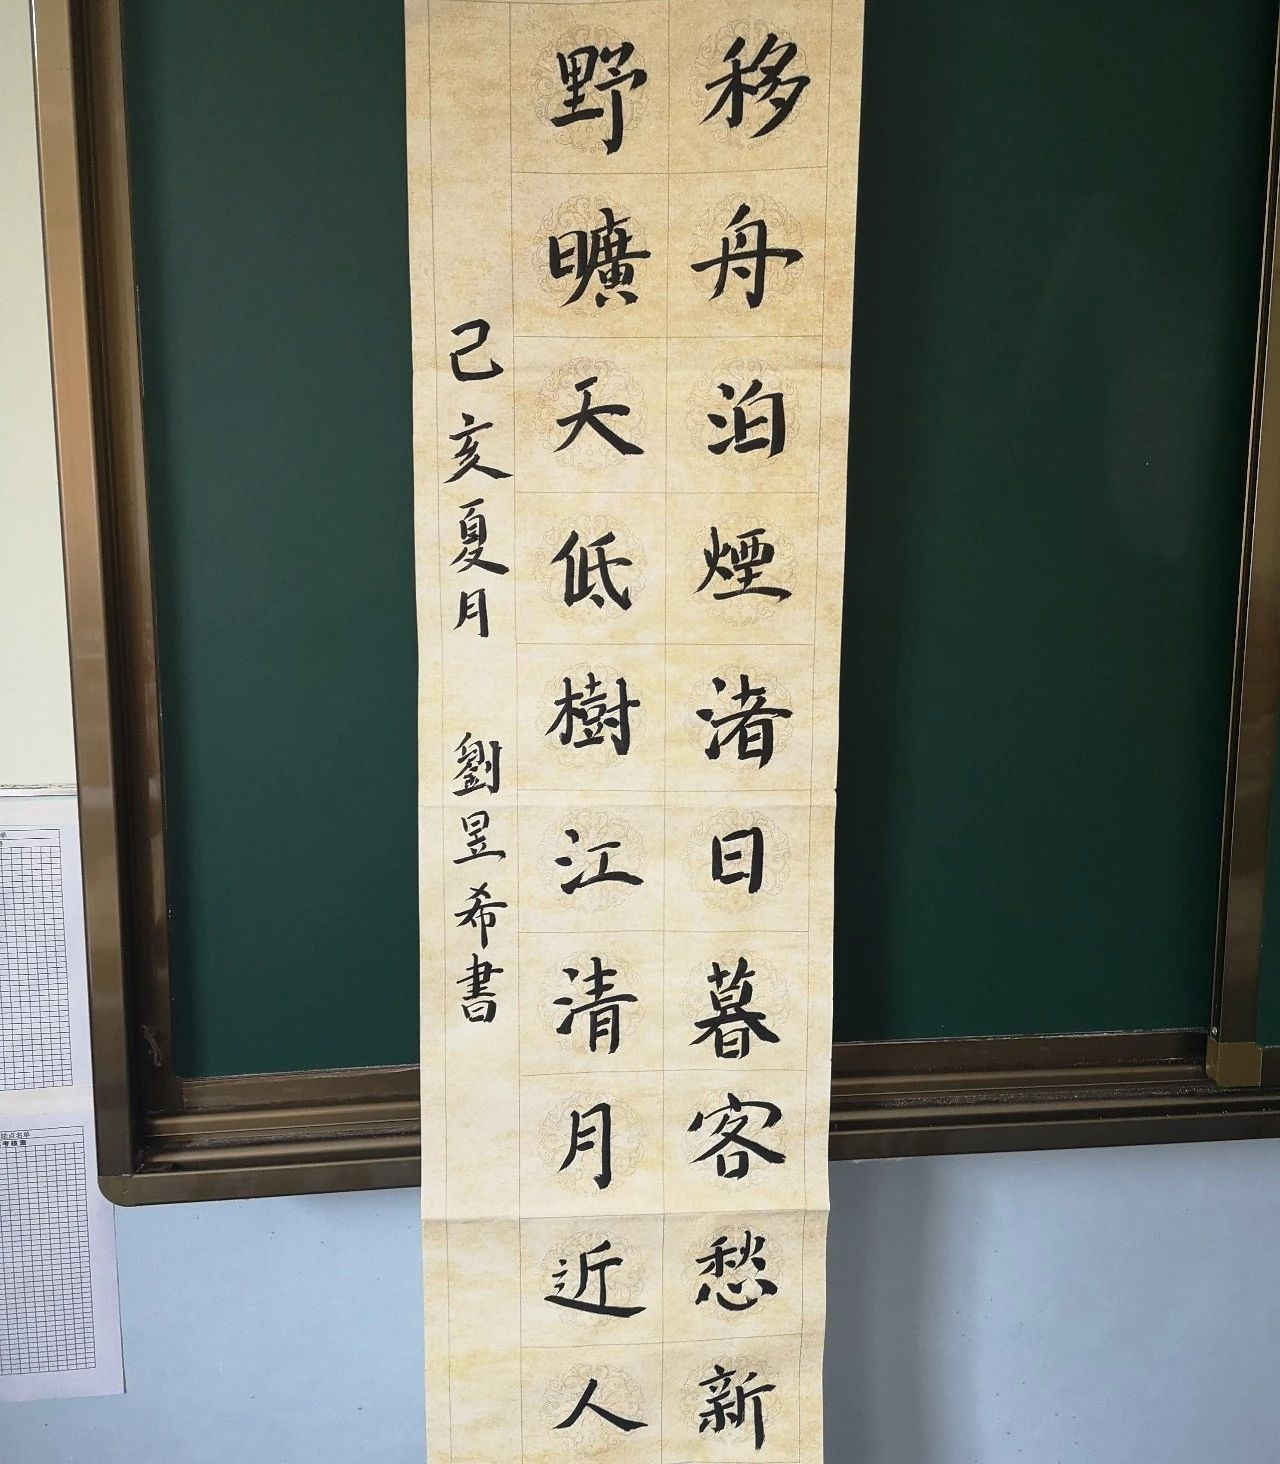 移舟泊煙渚日暮客愁新
野曠天低樹江清月近人
己亥夏月 劉昱希書